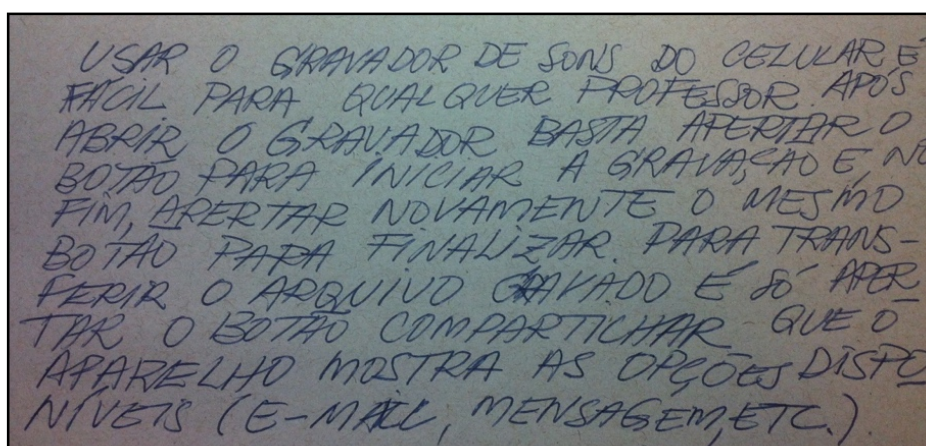 USAR O GRAVADOR DE SONS DO CELULAR É
FÁCIL PARA QUALQUER PROFESSOR. APÓS
ABRIR O GRAVADOR BASTA APERTAR O
BOTÃO PARA INICIAR A GRAVAÇÃO E, NO
FIM, APERTAR NOVAMENTE O MESMO
BOTÃO PARA FINALIZAR. PARA TRANS-
FERIR O ARQUIVO GRAVADO É SÓ APER
TAR O BOTÃO COMPARTICHAR QUE O
APARELHO MOSTRA AS OPÇÕES DISPO
NÍVEIS (E-MAIL, MENSAGEM, ETC.).